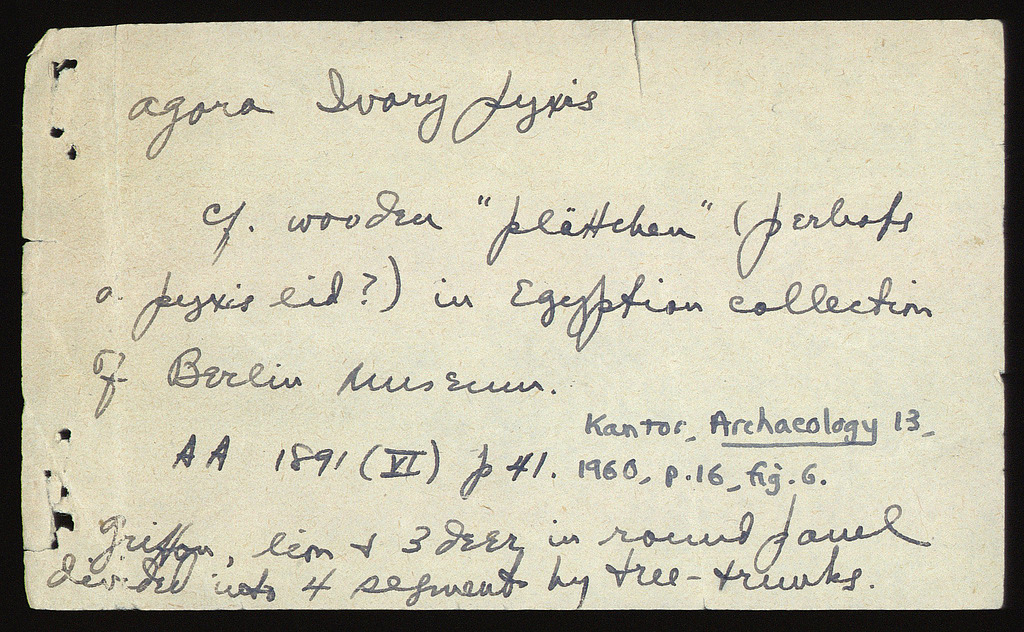 agora Ivory pyxis
cf. wooden "plättchen" (perhaps
a pyxis lid?) in Egyption collection
of Berlin Museum.
Kantor, Archaeology 13,
AA 1891 (VI) p 41. 1960, p.16, fig. 6.
Griffon, lion + 3 deer in round panel
divided into 4 segments by tree-trunks.